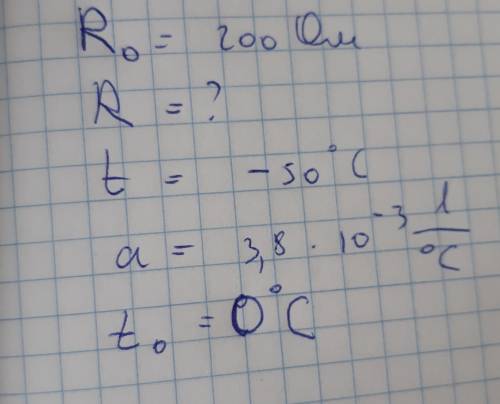 R₀ = 200 Ом
R = ?
t = -50°C
a = 3,8 · 10⁻³ 1/°C
t₀ = 0°C